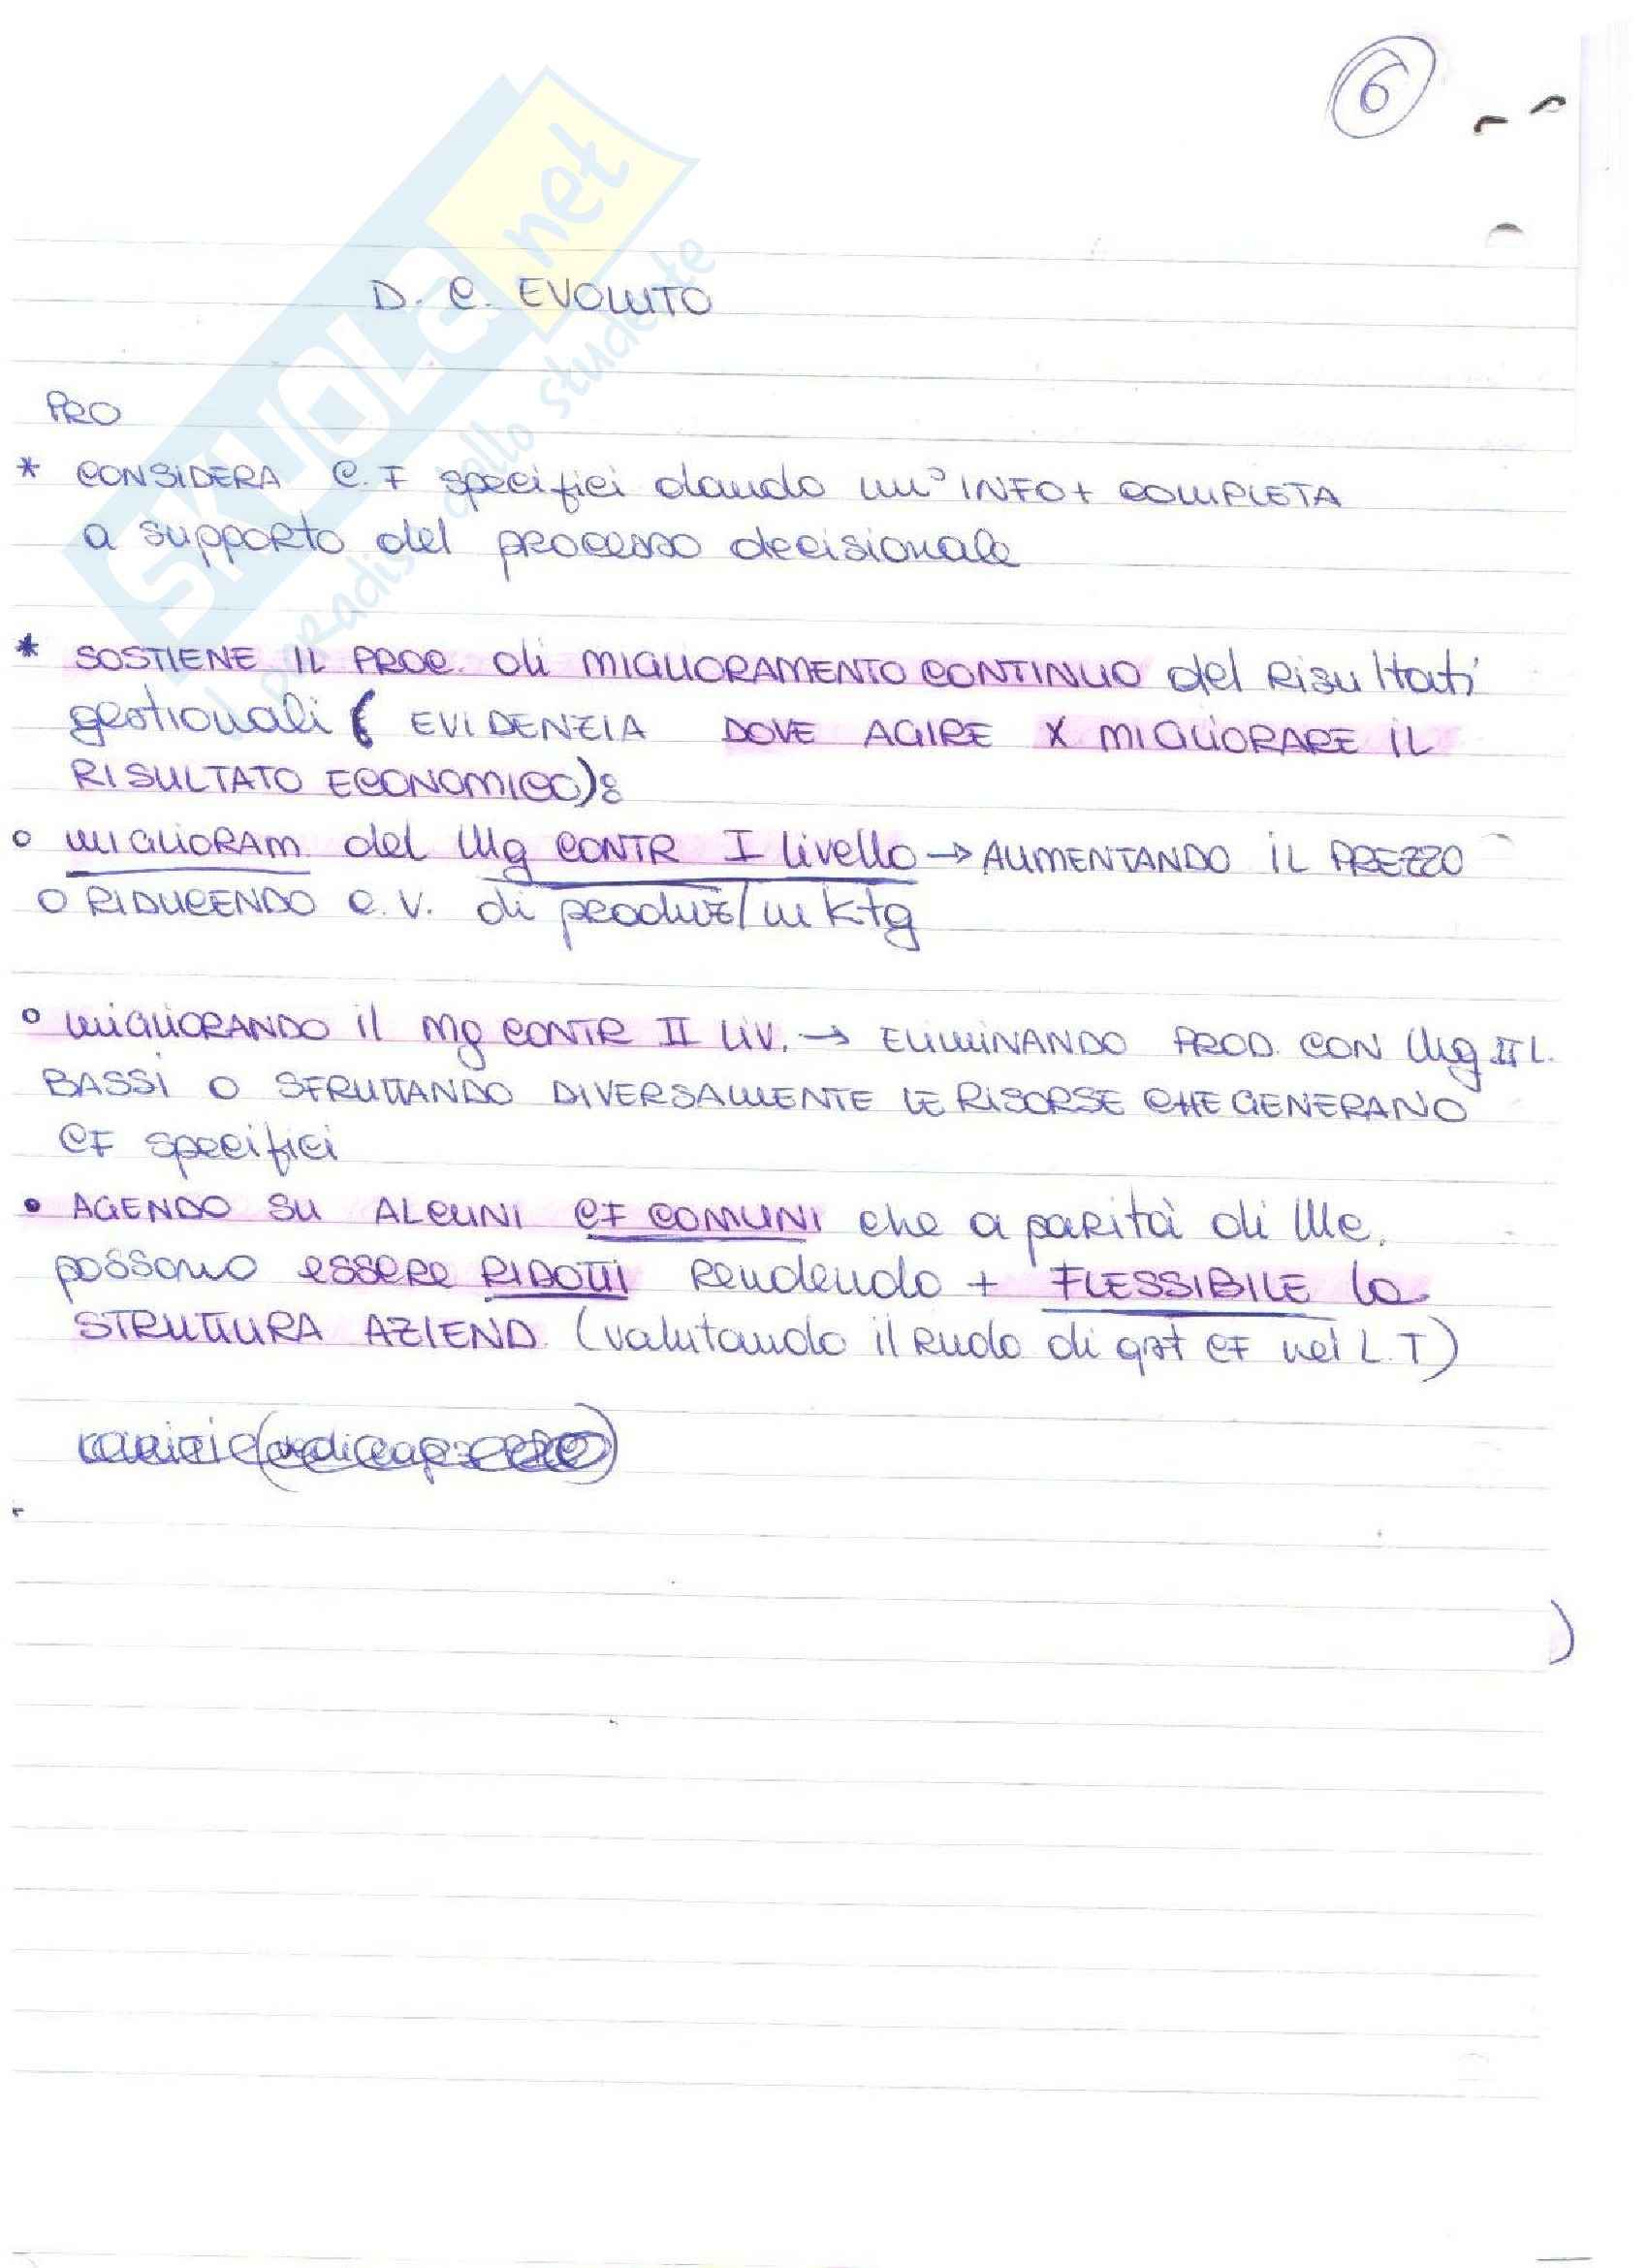 6
SKUOLA.net
il paradiso dello studente
D. C. EVOLUTO
PRO
* CONSIDERA C.F specifici dando un' INFO + COMPLETA
a supporto del processo decisionale
* SOSTIENE IL PROC. di MIGLIORAMENTO CONTINUO del Risultati
gestionali ( EVIDENZIA DOVE AGIRE X MIGLIORARE IL
RISULTATO ECONOMICO):
o MIGLIORAM. del Mg CONTR I livello → AUMENTANDO IL PREZZO
O RIDUCENDO C.V. di produz/mktg
o MIGLIORANDO il Mg CONTR II LIV. → ELIMINANDO PROD. CON Mg II L.
BASSI O SFRUTTANDO DIVERSAMENTE LE RISORSE CHE GENERANO
CF specifici
• AGENDO SU ALCUNI CF COMUNI che a parità di Mc.
possono essere RIDOTTI Rendendo + FLESSIBILE la
STRUTTURA AZIEND. (valutando il Ruolo di qst CF nel L.T)